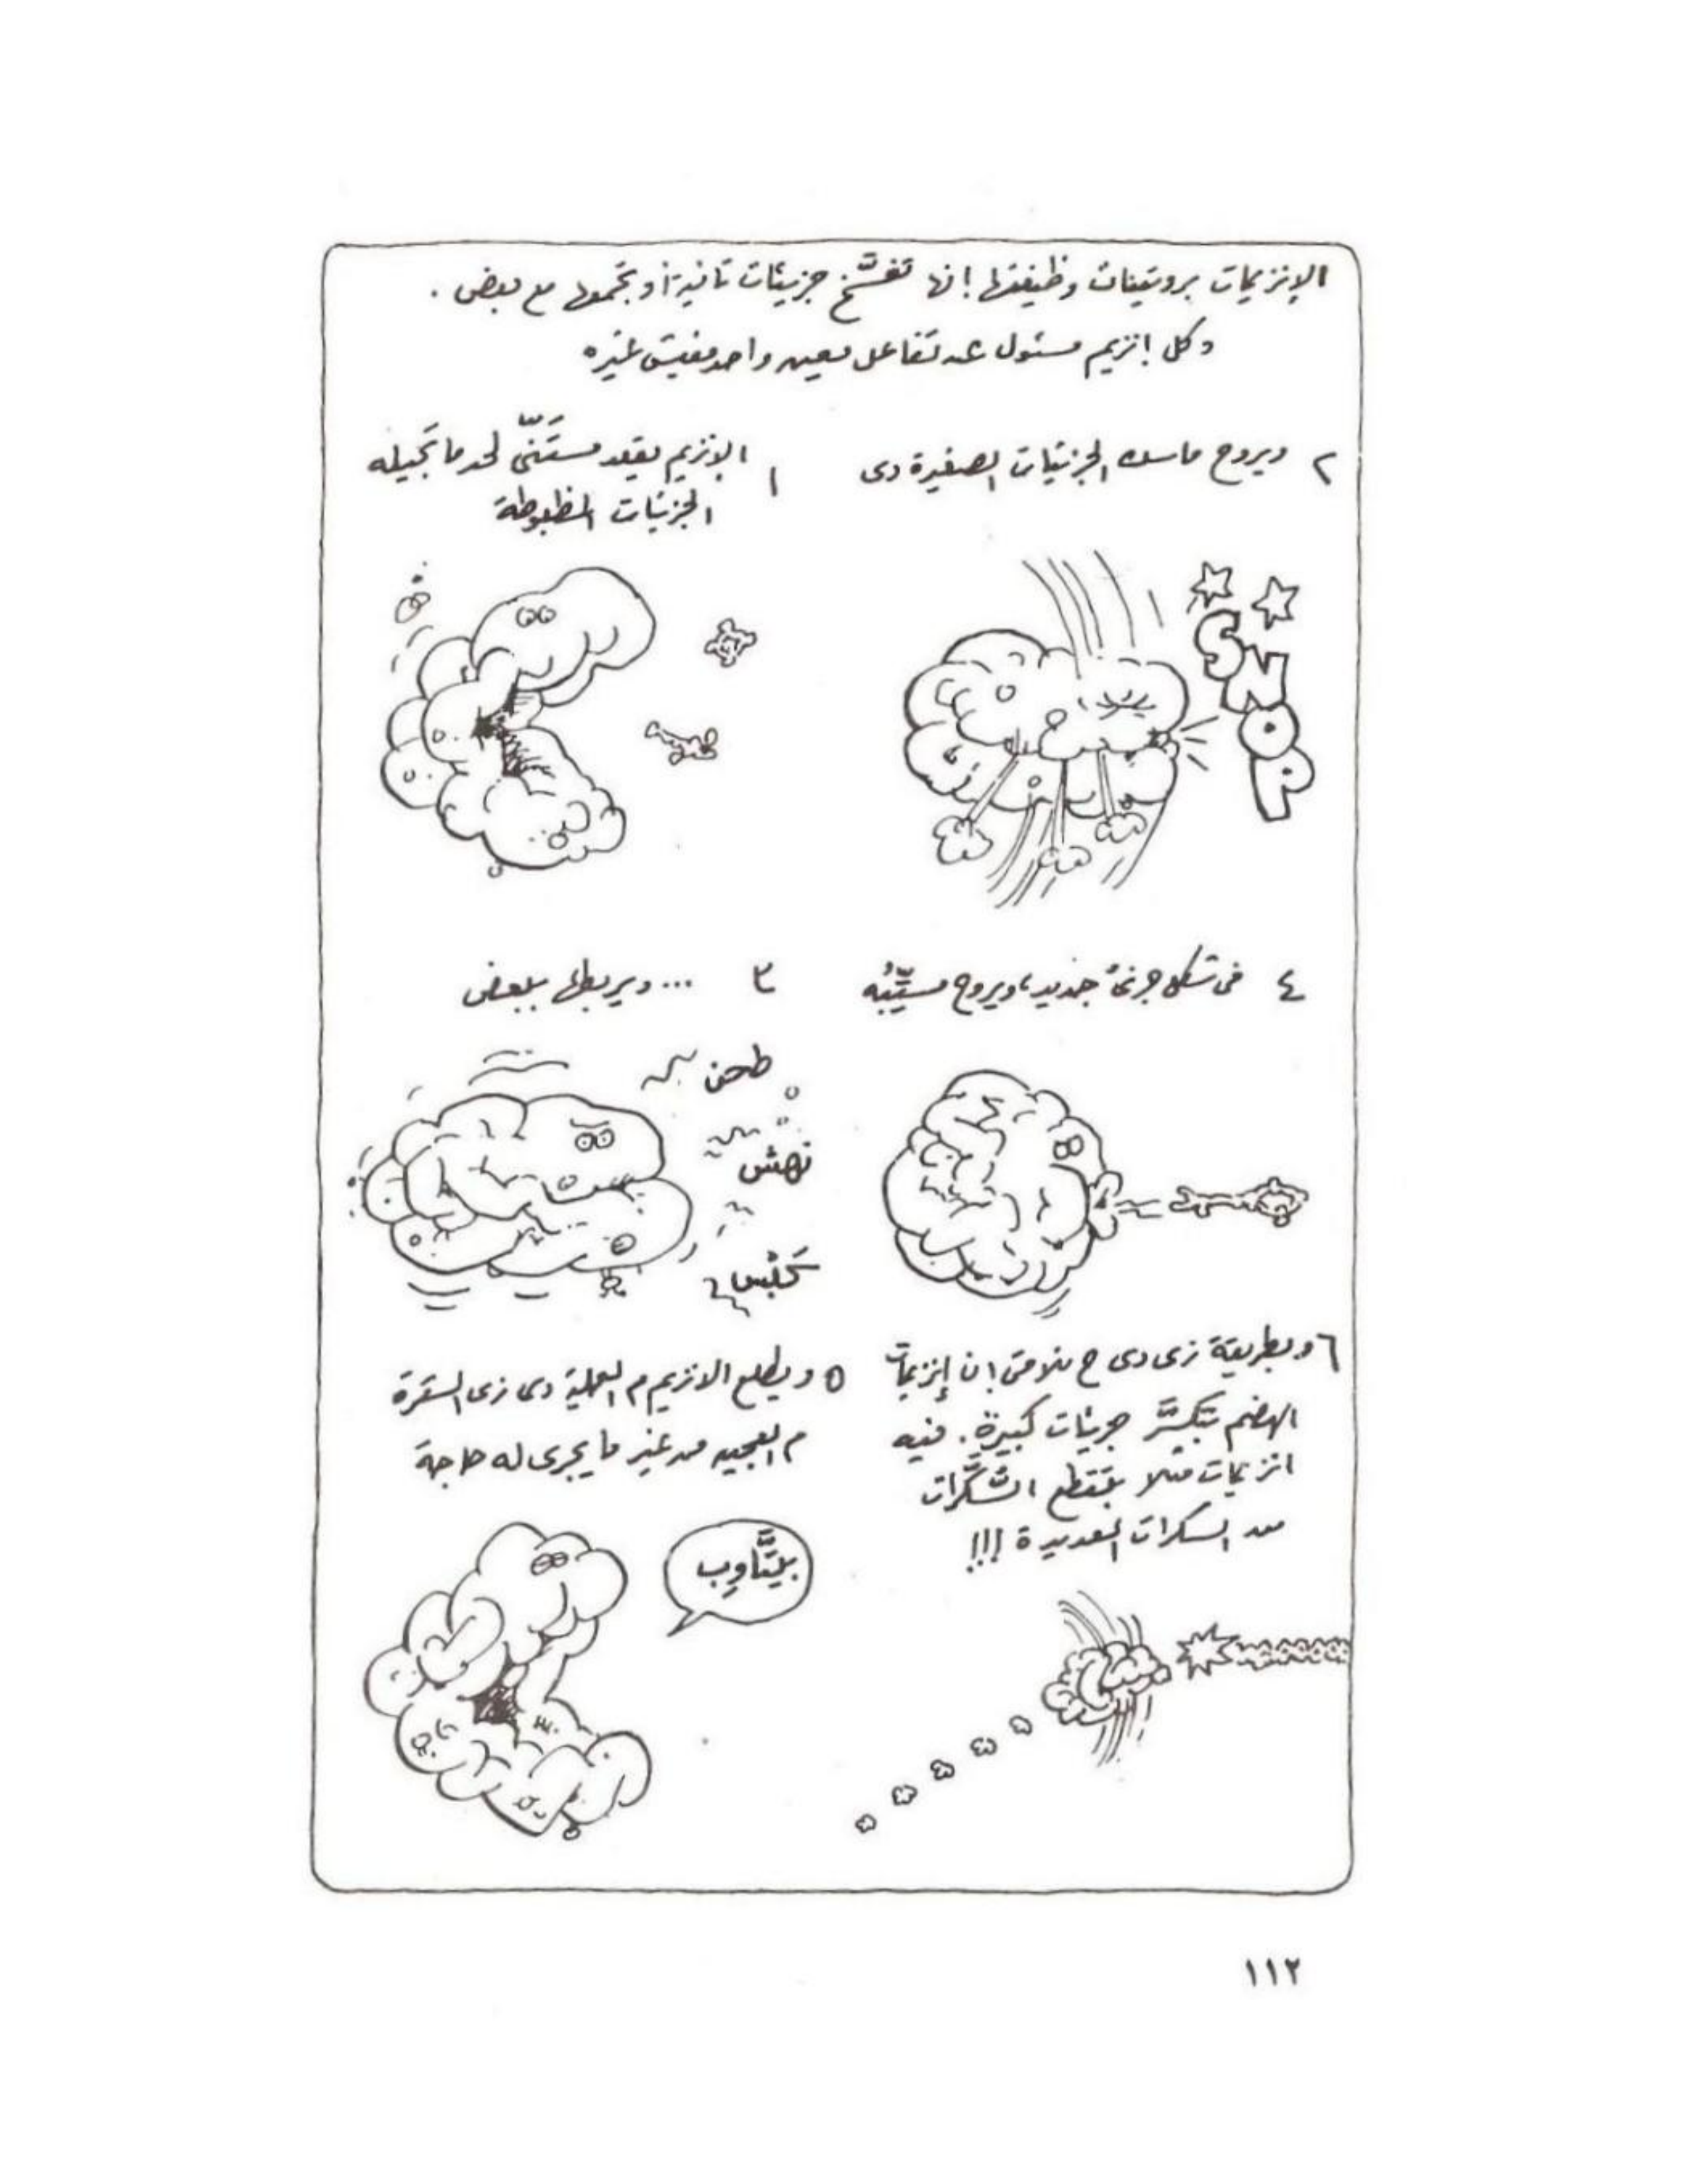 الإنزيمات بروتينات وظيفتها إنها تفسَّخ جزيئات تانية أو تجمعها مع بعض .
وكل إنزيم مسئول عن تفاعل معين واحد مفيش غيره
١ الإنزيم يقعد مستَنّى لحد ما تجيله
الجزئيات المظبوطة
٢ ويروح ماسك الجزئيات الصغيرة دى
SNAP
٣ ...ويربطها ببعض
طحن
نهش
كلبش
٤ فى شكل جزئ جديد، ويروح مسيِّبُه
٥ ويطلع الانزيم م العملية دى زى الشعرة
م العجين من غير ما يجرى له حاجة
بيتَّاوِب
٦ وبطريقة زى دى ح نلاقى إن إنزيمات
الهضم بتكسَّر جزيئات كبيرة. فيه
انزيمات مثلا بتقطع السُّكَّرات
من السكرات العديدة !!!
١١٢